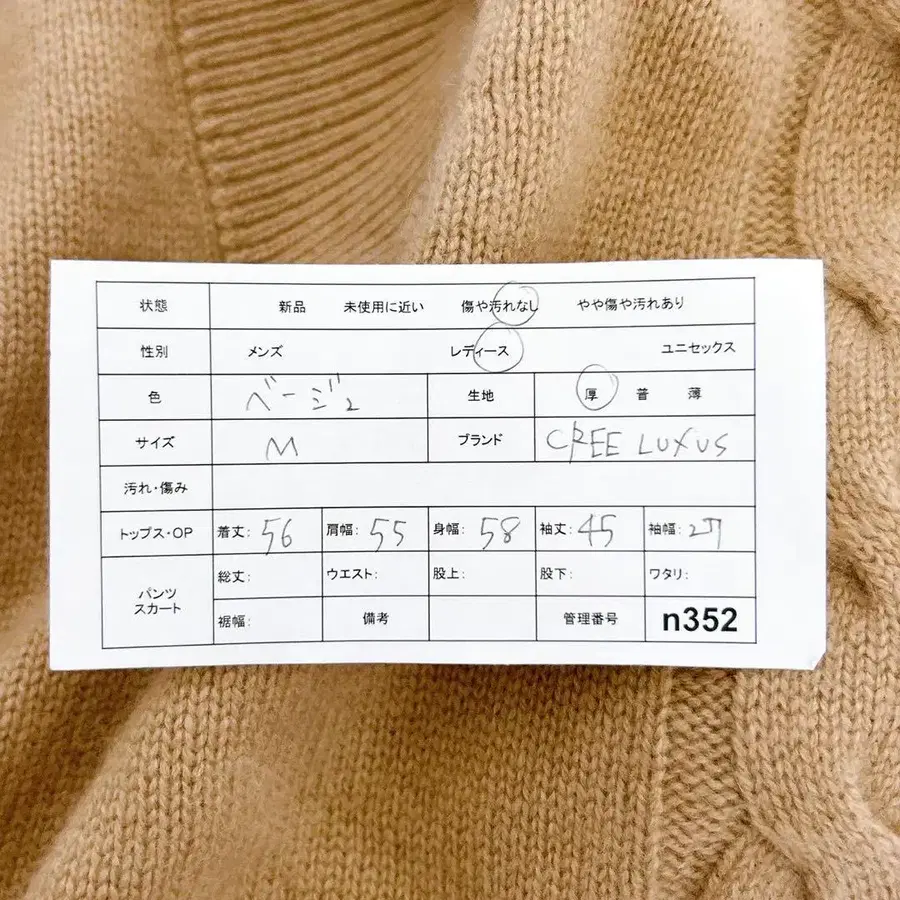 状態 新品 未使用に近い 傷や汚れなし やや傷や汚れあり
性別 メンズ レディース ユニセックス
色 ベージュ 生地 厚 普 薄
サイズ M ブランド CREE LUXUS
汚れ・傷み
トップス・OP 着丈: 56 肩幅: 55 身幅: 58 袖丈: 45 袖幅:
パンツ スカート 総丈: ウエスト: 股上: 股下: ワタリ:
裾幅: 備考 管理番号 n352